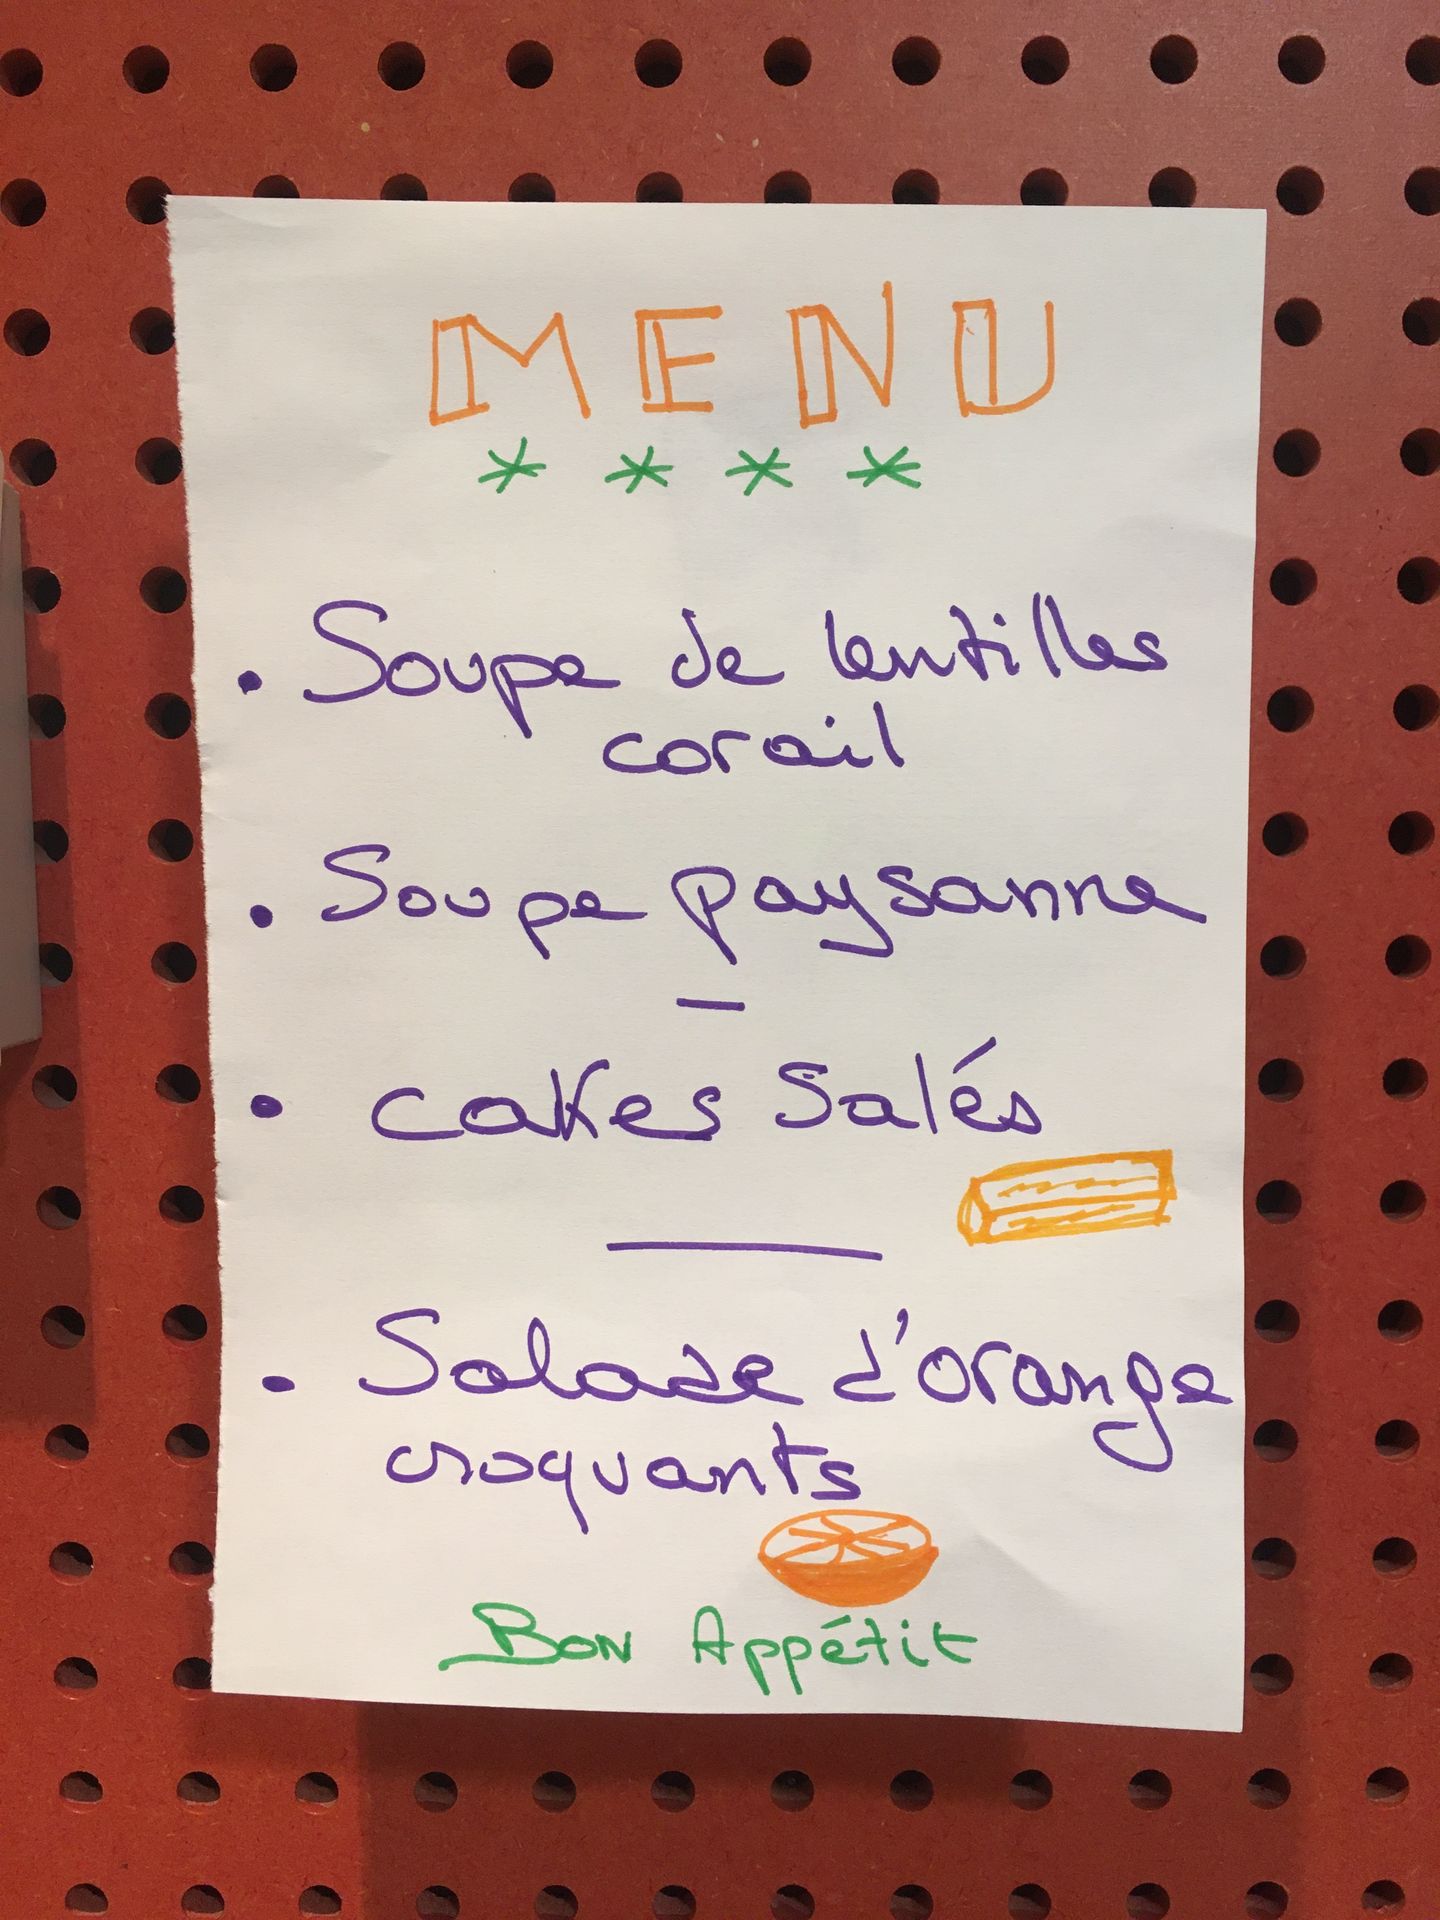 MENU
* * * *
• Soupe de lentilles
corail
• Soupe paysanne
–
• cakes salés
—
• Salade d'orange
croquants
Bon Appétit